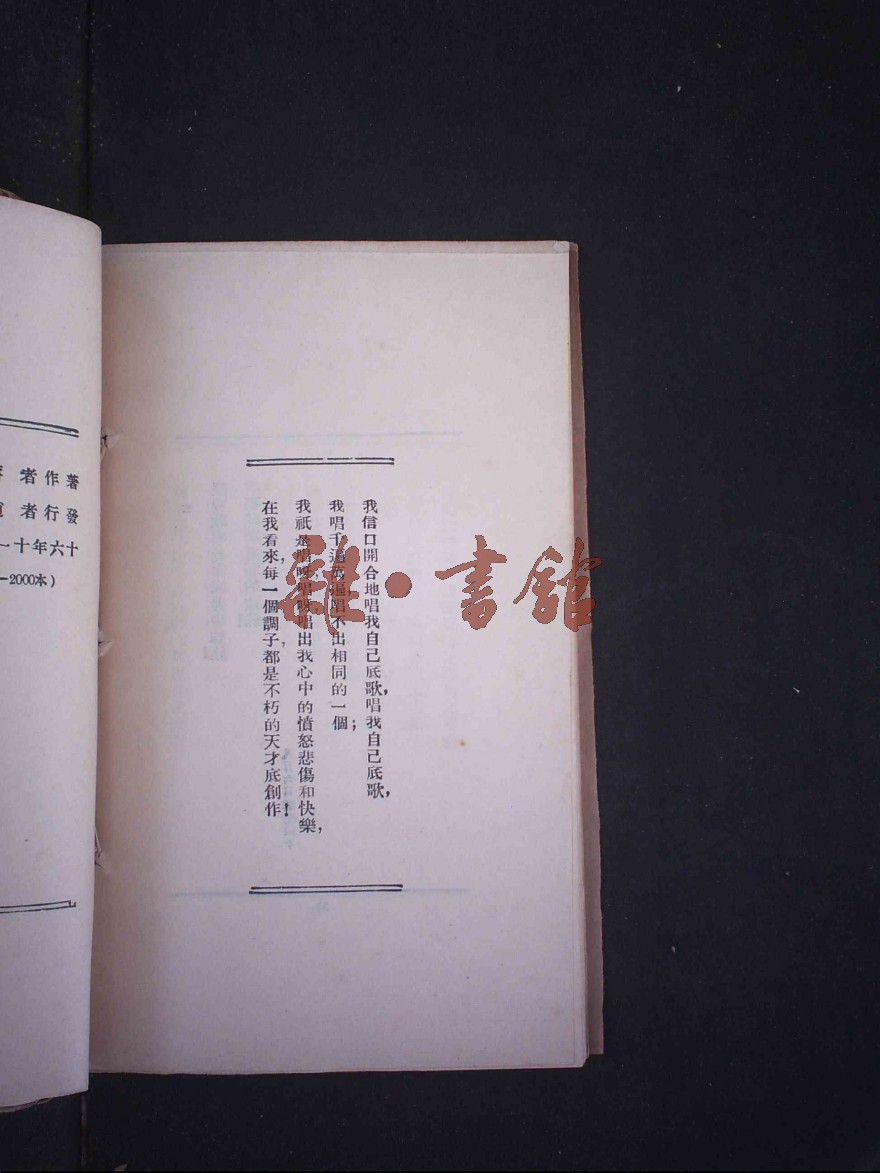 著作者
發行者
十六年十一
—2000本)
我信口開合地唱我自己底歌,唱我自己底歌,
我唱千遍萬遍唱不出相同的一個;
我祇是唱呀,唱呀唱出我心中的憤怒悲傷和快樂,
在我看來,每一個調子都是不朽的天才底創作!
雜·書館